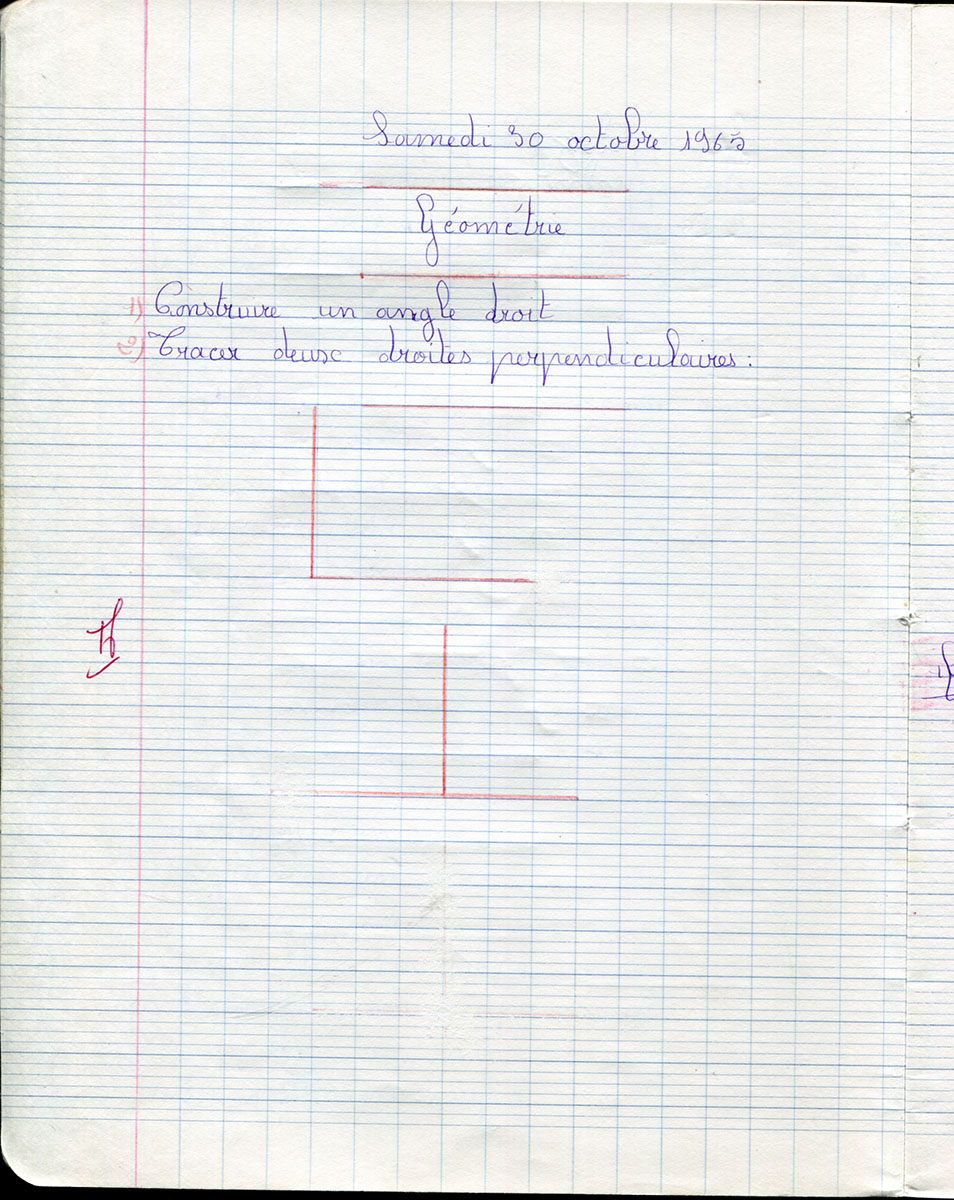 Samedi 30 octobre 1965
Géométrie
1) Construire un angle droit
2) Tracer deux droites perpendiculaires :